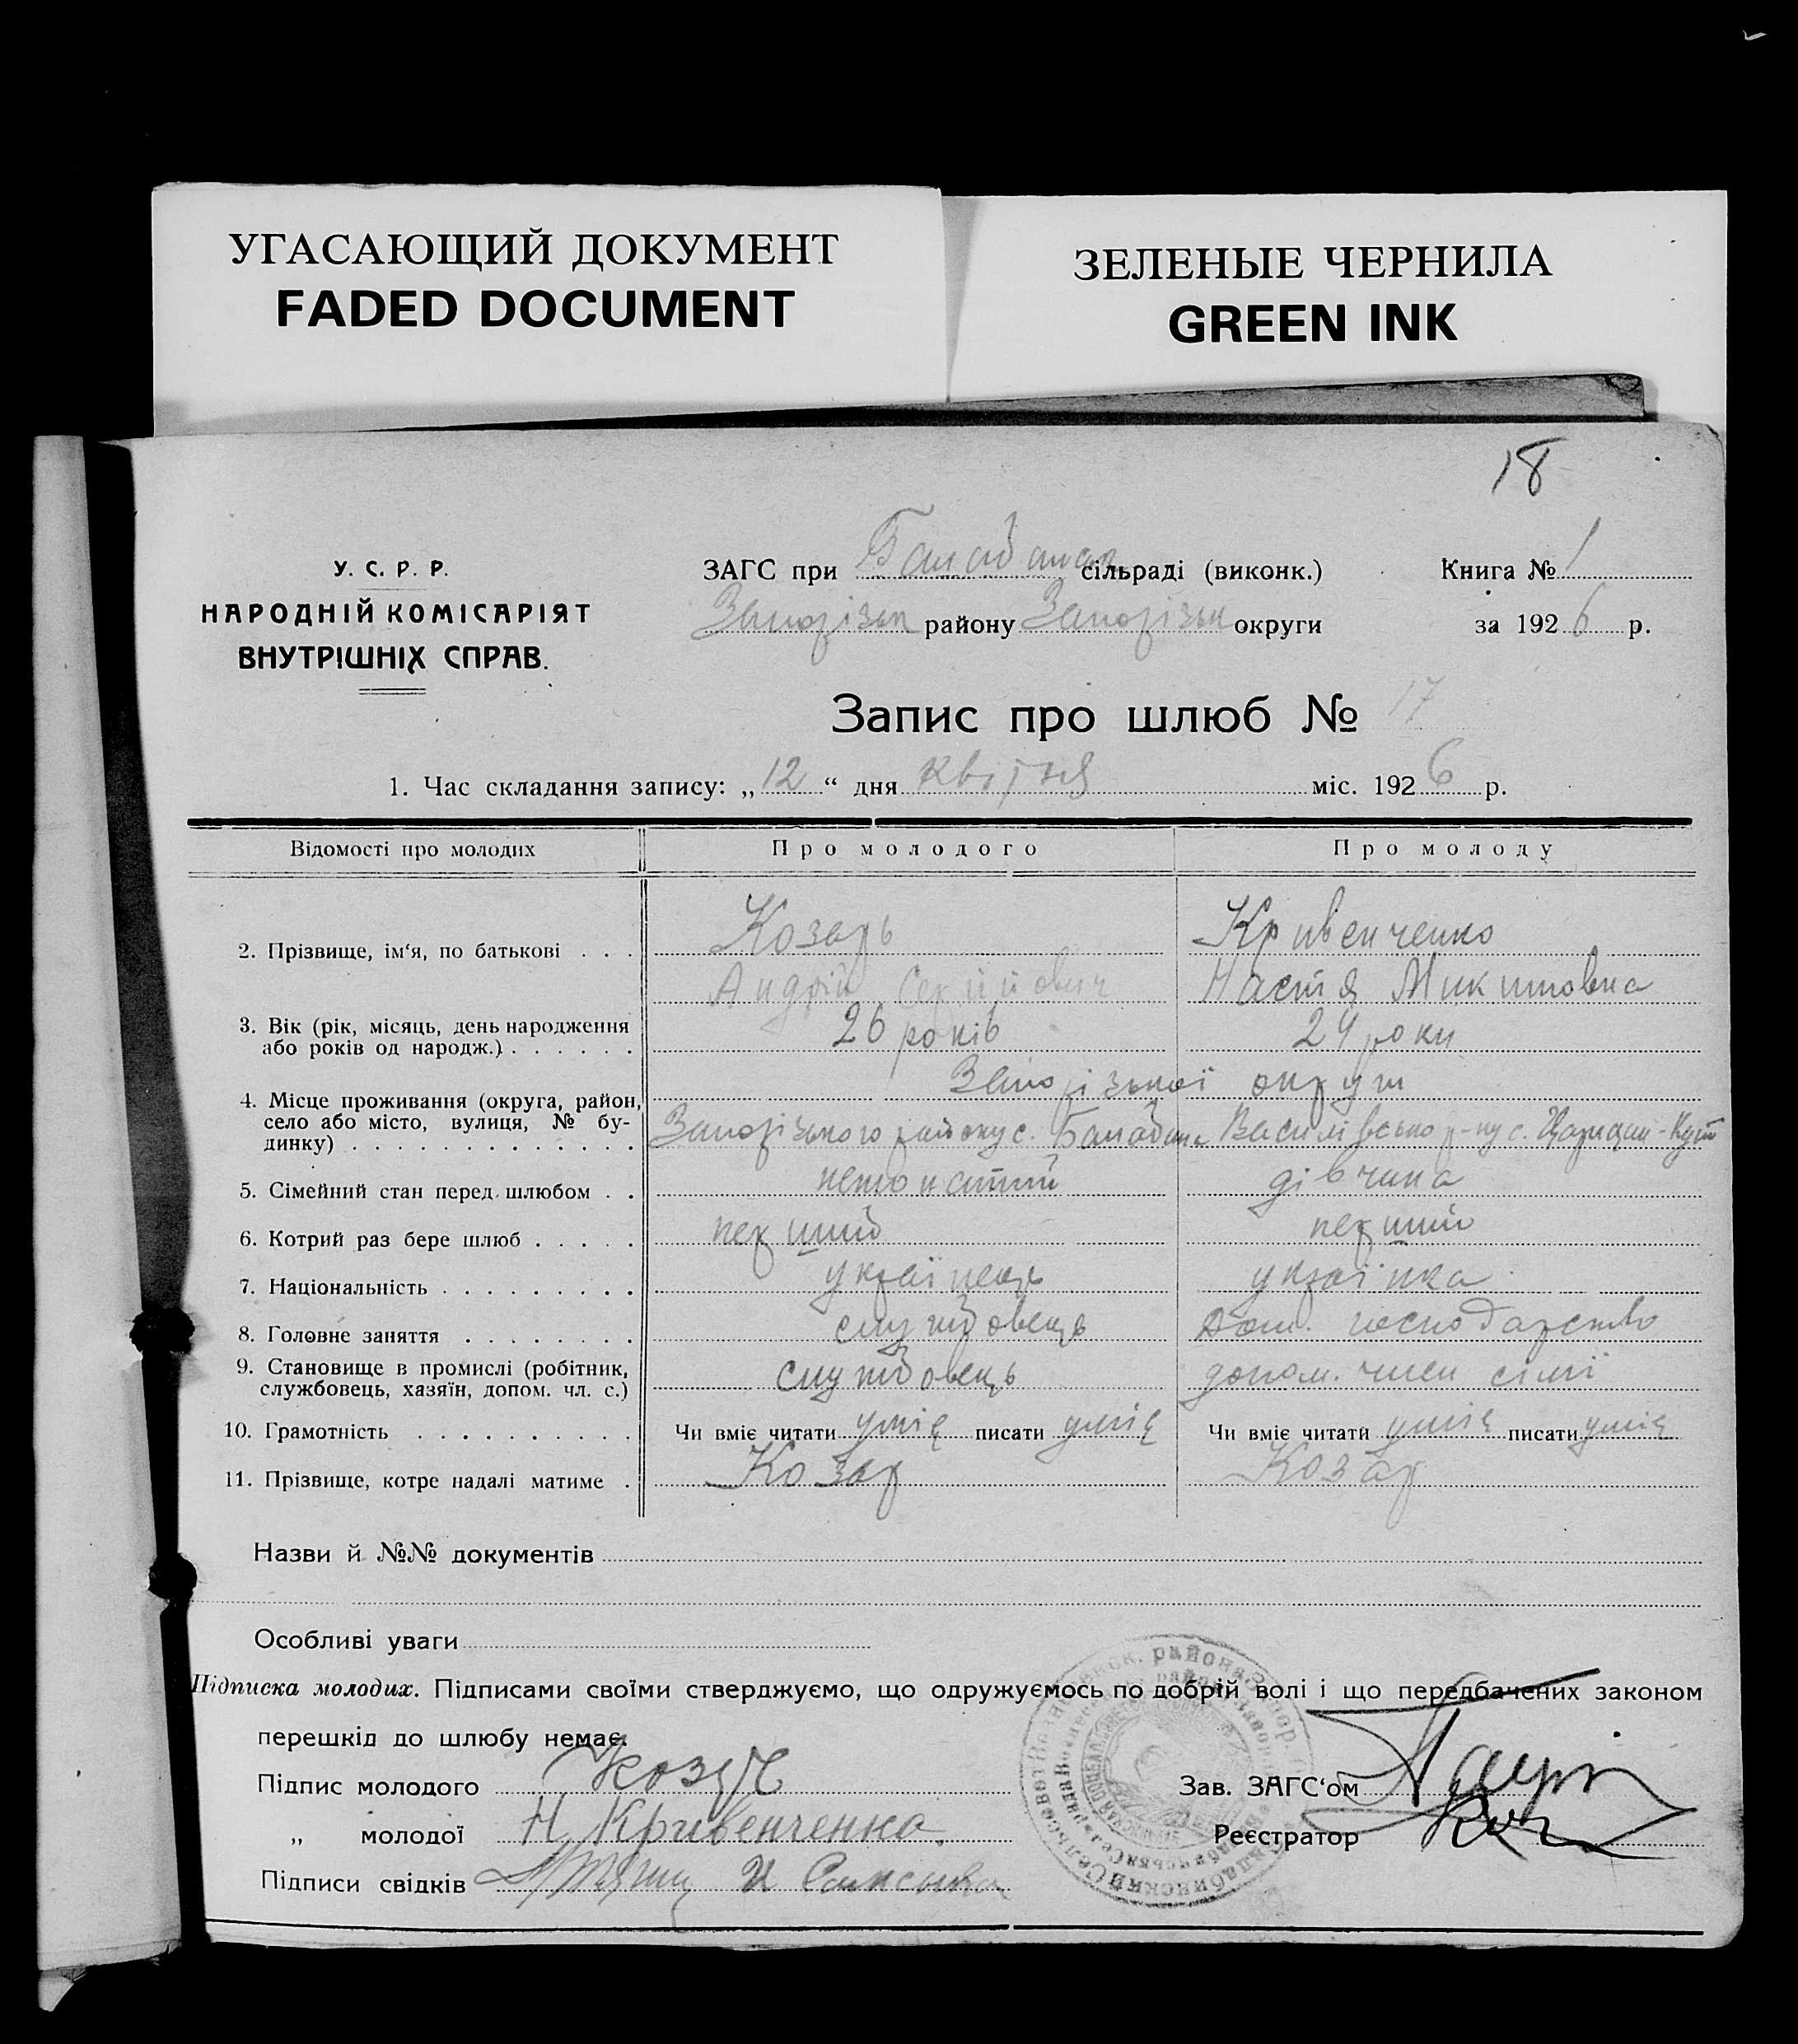 УГАСАЮЩИЙ ДОКУМЕНТ
FADED DOCUMENT
ЗЕЛЕНЫЕ ЧЕРНИЛА
GREEN INK
18
У. С. Р. Р.
НАРОДНІЙ КОМІСАРІЯТ
ВНУТРІШНІХ СПРАВ.
ЗАГС при Балабанск сільраді (виконк.)
Запорізьк району Запорізьк округи
Книга № 1
за 1926 р.
Запис про шлюб № 17
1. Час складання запису: „12“ дня квітня міс. 1926 р.
Відомості про молодих Про молодого Про молоду
2. Прізвище, ім‘я, по батькові . . . Козарь Кривенченко
Андрій Сергійович Настя Микитовна
3. Вік (рік, місяць, день народження або років од народж.) . . . . . . 26 років 24 роки
Запорізької округи
4. Місце проживання (округа, район, село або місто, вулиця, № будинку) . . . . . . . . . . . . . Запорізького району с. Балабине Василівсько р-ну с. Царицин-Кут
5. Сімейний стан перед шлюбом . . нежонатий дівчина
6. Котрий раз бере шлюб . . . . . перший перший
7. Національність . . . . . . . . . українець українка
8. Головне заняття . . . . . . . . службовець дом. господарство
9. Становище в промислі (робітник, службовець, хазяїн, допом. чл. с.) службовець допом. член сімї
10. Грамотність . . . . . . . . . . Чи вміє читати уміє писати уміє Чи вміє читати уміє писати уміє
11. Прізвище, котре надалі матиме . Козар Козар
Назви й №№ документів
Особливі уваги
Підписка молодих. Підписами своїми стверджуємо, що одружуємось по добрій волі і що передбачених законом
перешкід до шлюбу немає.
Підпис молодого Козар
„ молодої Н Кривенченко.
Підписи свідків
Зав. ЗАГС‘ом
Реєстратор